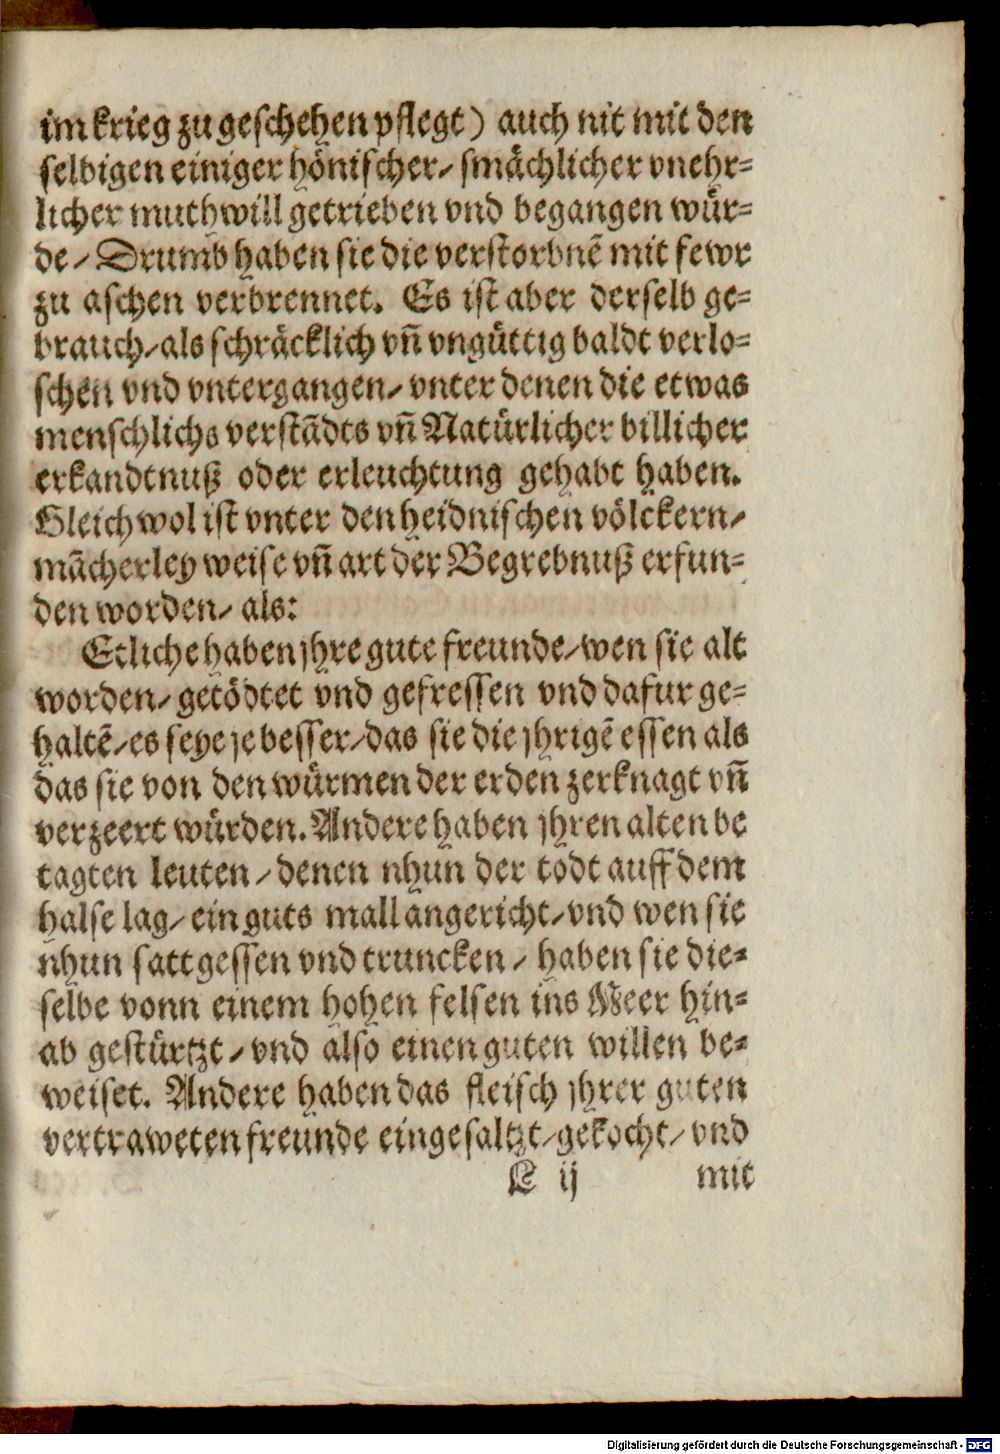 im krieg zu geschehen pflegt) auch nit mit den
selbigen einiger hönischer/ smächlicher vnehr⸗
licher muthwill getrieben vnd begangen wür⸗
de/ Drumb haben sie die verstorbnẽ mit fewr
zu aschen verbrennet. Es ist aber derselb ge⸗
brauch/ als schräcklich vñ vngüttig baldt verlo⸗
schen vnd vntergangen/ vnter denen die etwas
menschlichs verstãdts vñ Natürlicher billicher
erkandtnuß oder erleuchtung gehabt haben.
Gleichwol ist vnter den heidnischen völckern/
mãcherley weise vñ art der Begrebnuß erfun⸗
den worden/ als:
Etliche haben jhre gute freunde/ wen sie alt
worden/ getödtet vnd gefressen vnd dafur ge⸗
haltẽ/ es seye je besser/ das sie die jhrigẽ essen als
das sie von den würmen der erden zerknagt vñ
verzeert würden. Andere haben jhren alten be
tagten leuten/ denen nhun der todt auff dem
halse lag/ ein guts mall angericht/ vnd wen sie
nhun satt gessen vnd truncken/ haben sie die⸗
selbe vonn einem hohen felsen ins Meer hin⸗
ab gestürtzt/ vnd also einen guten willen be⸗
weiset. Andere haben das fleisch jhrer guten
vertraweten freunde eingesaltzt/ gekocht/ vnd
L ij mit
Digitalisierung gefördert durch die Deutsche Forschungsgemeinschaft - DFG